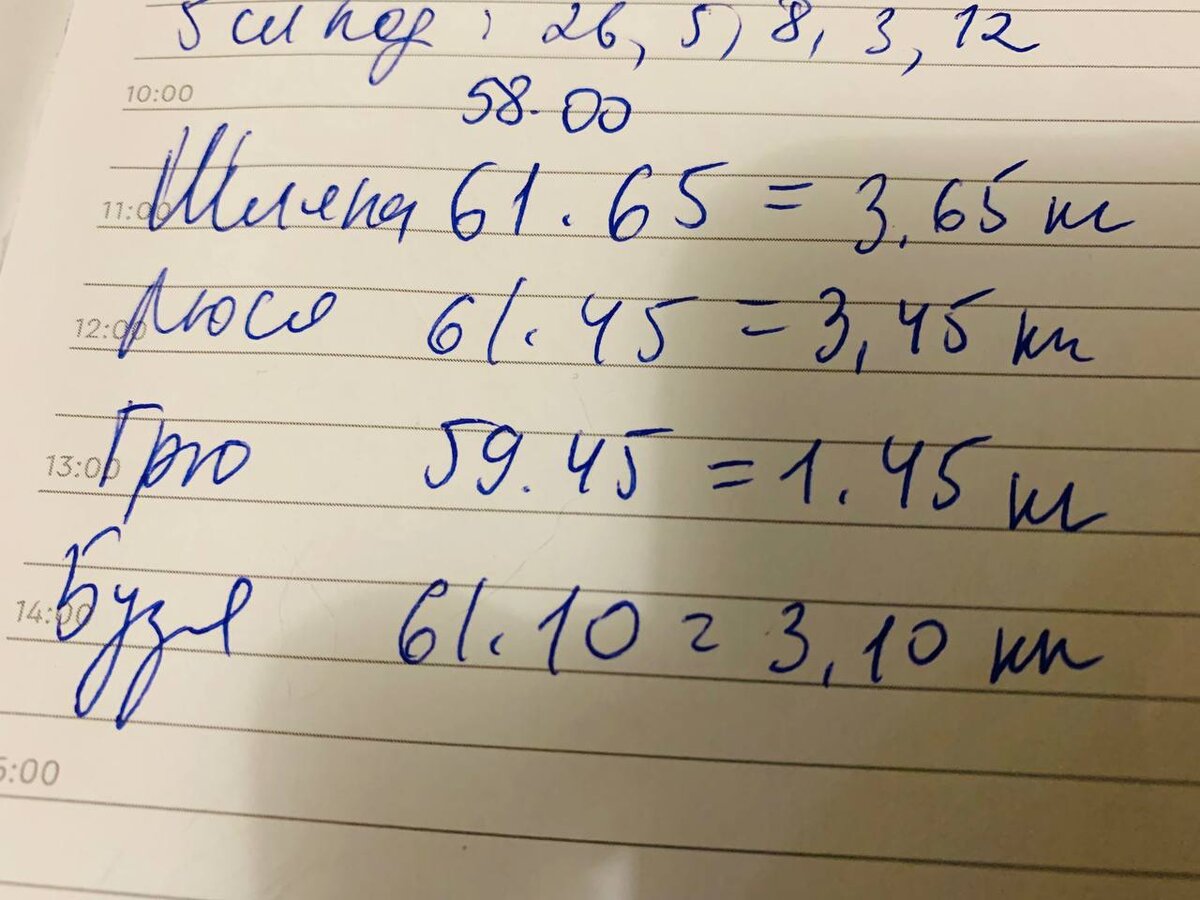 5 см под : 26, 5, 8, 3, 12
10:00 58.00
11:00 Шляпа 61.65 = 3,65 кг
12:00 Люся 61.45 = 3,45 кг
13:00 Грю 59.45 = 1.45 кг
14:00 Бузя 61.10 = 3,10 кг
5:00